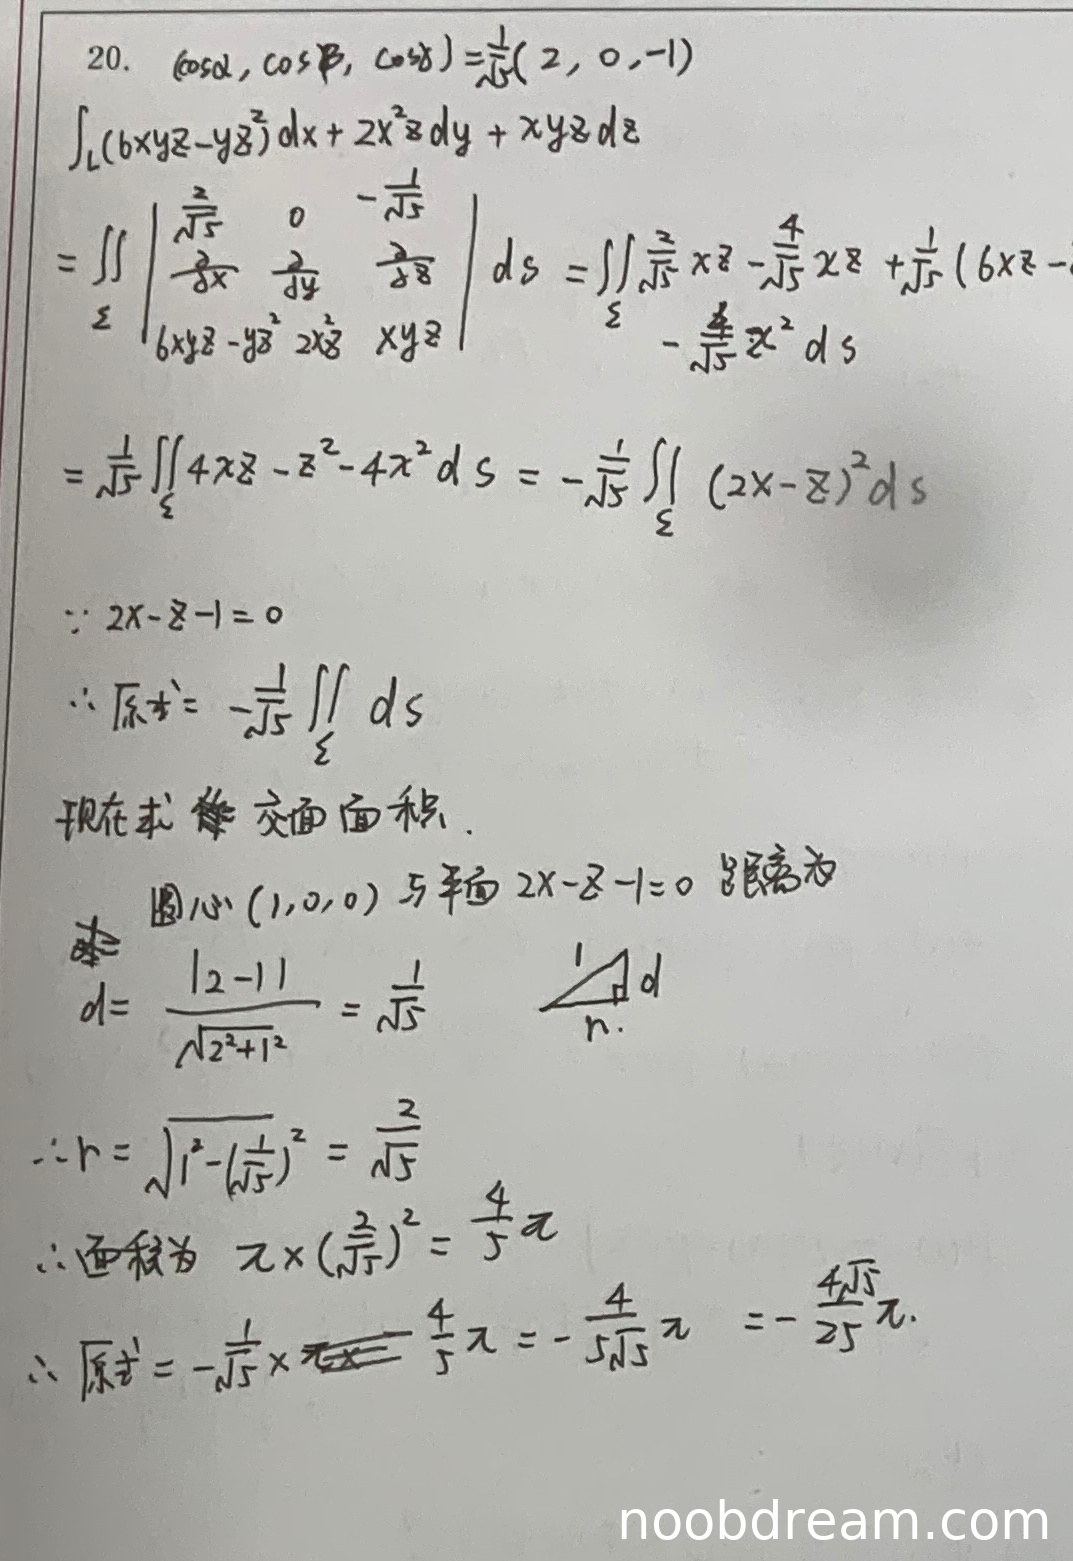 20. (cosα, cosβ, cosγ) = 1/√5 (2, 0, -1)
∫_L (6xyz - yz²) dx + 2x²z dy + xyz dz
= ∬_Σ | 2/√5 0 -1/√5 ; ∂/∂x ∂/∂y ∂/∂z ; 6xyz - yz² 2x²z xyz | ds = ∬_Σ 2/√5 xz - 4/√5 xz + 1/√5 (6xz -
- 4/√5 x² ds
= 1/√5 ∬_Σ 4xz - z² - 4x² ds = - 1/√5 ∬_Σ (2x - z)² ds
∵ 2x - z - 1 = 0
∴ 原式 = - 1/√5 ∬_Σ ds
现在求 交面面积.
圆心 (1, 0, 0) 与平面 2x - z - 1 = 0 距离为
d = |2 - 1| / √(2² + 1²) = 1/√5 1 d r.
∴ r = √(1² - (1/√5)²) = 2/√5
∴ 面积为 π × (2/√5)² = 4/5 π
∴ 原式 = - 1/√5 × 4/5 π = - 4/(5√5) π = - 4√5/25 π.
noobdream.com